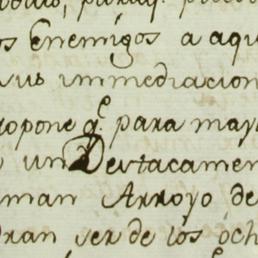 os Enemigos a aqu
sus immediacion
ropone q.e para may
un Destacamen
man Arroyo de
dran ser de los och